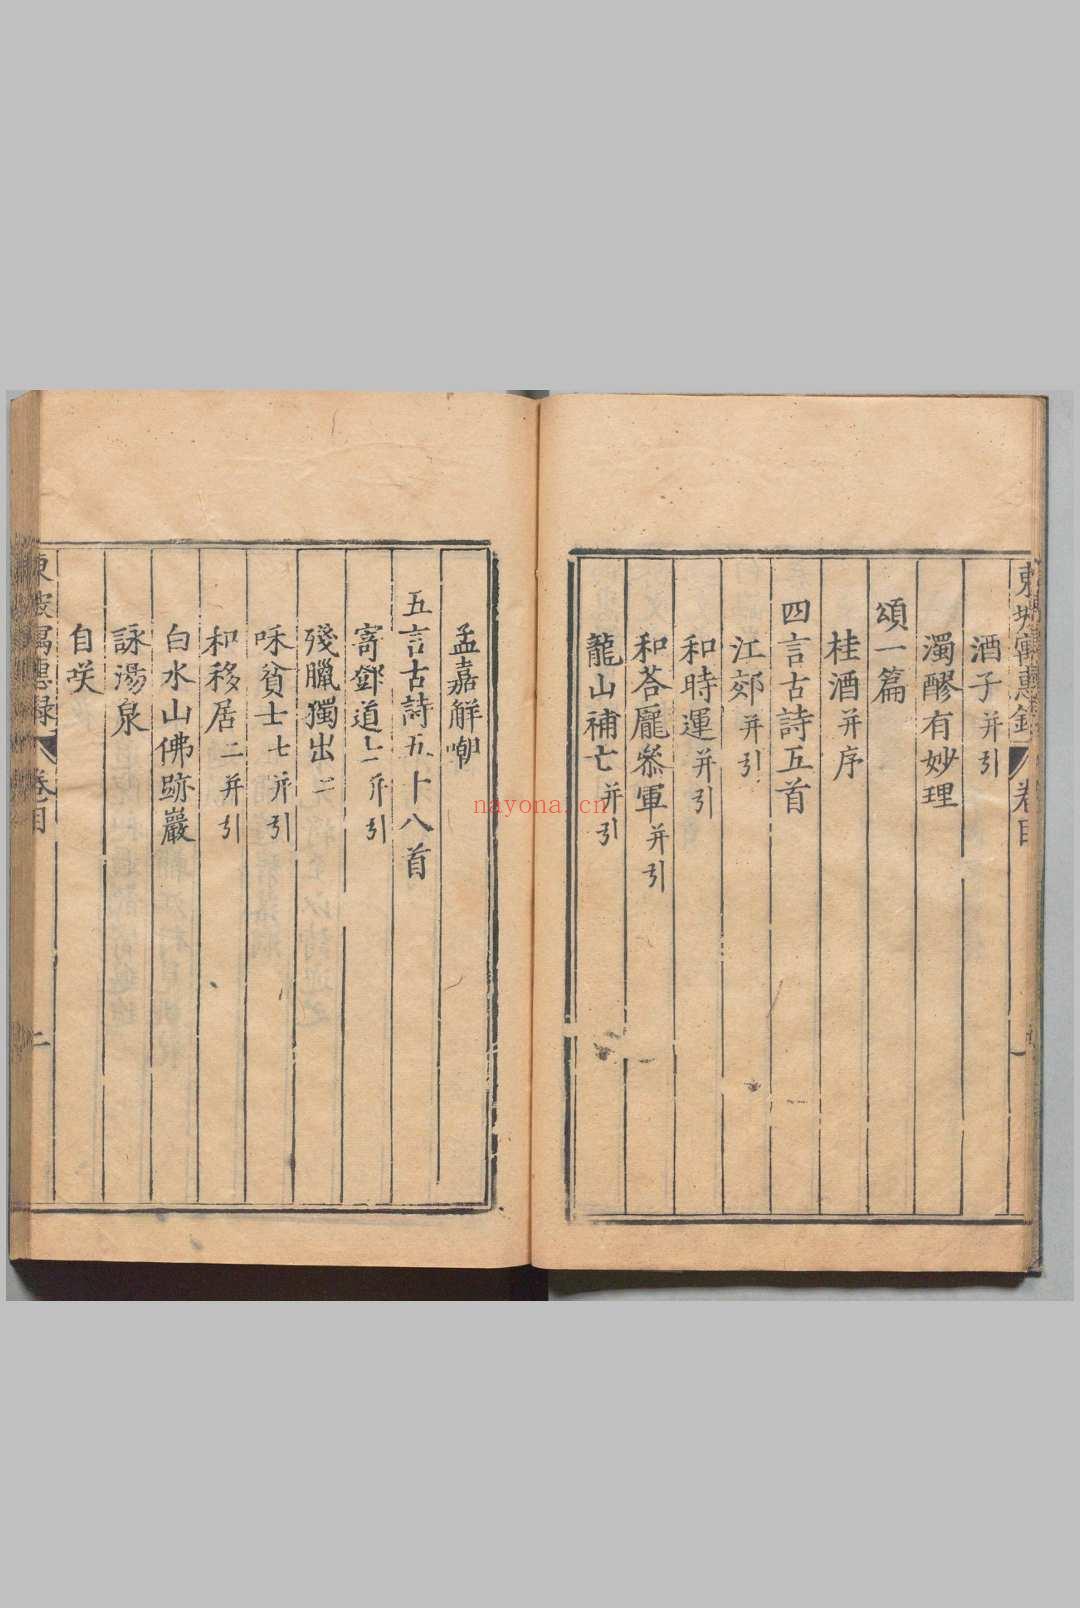 東坡寓惠錄 卷目
酒子并引
濁醪有妙理
頌一篇
桂酒并序
四言古詩五首
江郊并引
和時運并引
和荅龐參軍并引
龍山補亡并引
孟嘉解嘲
五言古詩五十八首
寄鄧道士一并引
殘臘獨出二
咊貧士七并引
和移居二并引
白水山佛跡巖
詠湯泉
自笑
東坡寓惠錄 卷目 二
nayona.cn